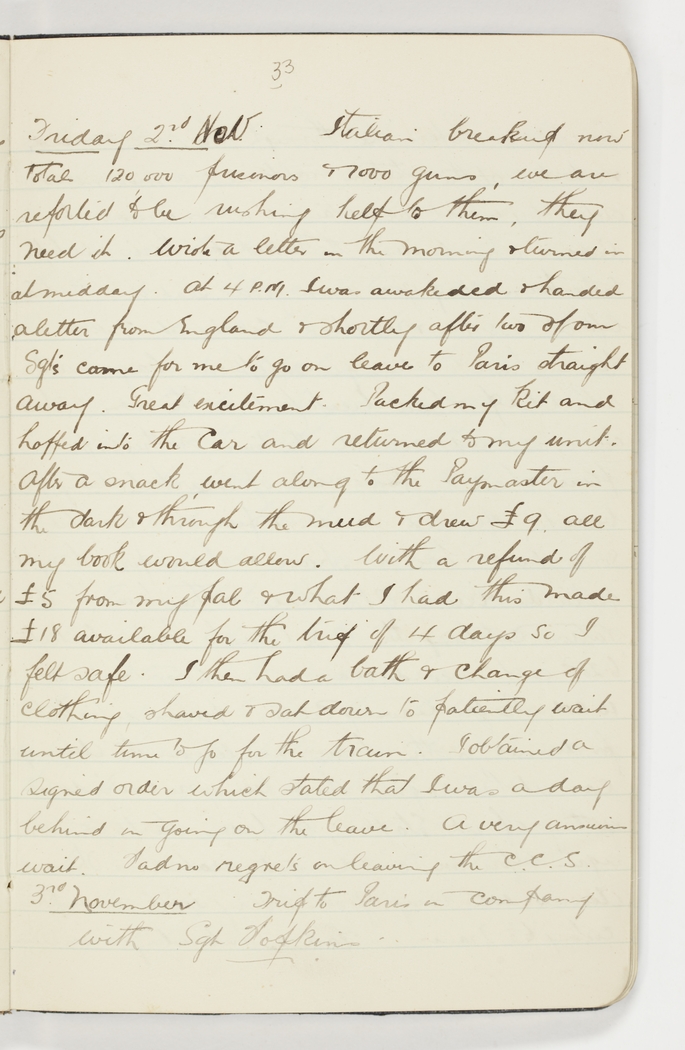 33
Friday 2nd Nov. Italian breakup now
total 120 000 prisoners & 1000 guns, we are
reported to be rushing help to them, they
need it. Wrote a letter in the morning & turned in
at midday. At 4 P.M. I was awakeded & handed
a letter from England & shortly after two of our
Sgts came for me to go on leave to Paris straight
away. Great excitement. Packed my kit and
hopped into the Car and returned to my unit.
After a snack, went along to the Paymaster in
the dark & through the mud & drew £9. all
my book would allow. With a refund of
£5 from my pal & what I had this made
£18 available for the trip of 4 days so I
felt safe. I then had a bath & change of
clothing, shaved & sat down to patiently wait
until time to go for the train. I obtained a
signed order which stated that I was a day
behind in going on the leave. A very anxious
wait. Had no regrets on leaving the C.C.S.
3rd November Trip to Paris in company
with Sgt Hopkins